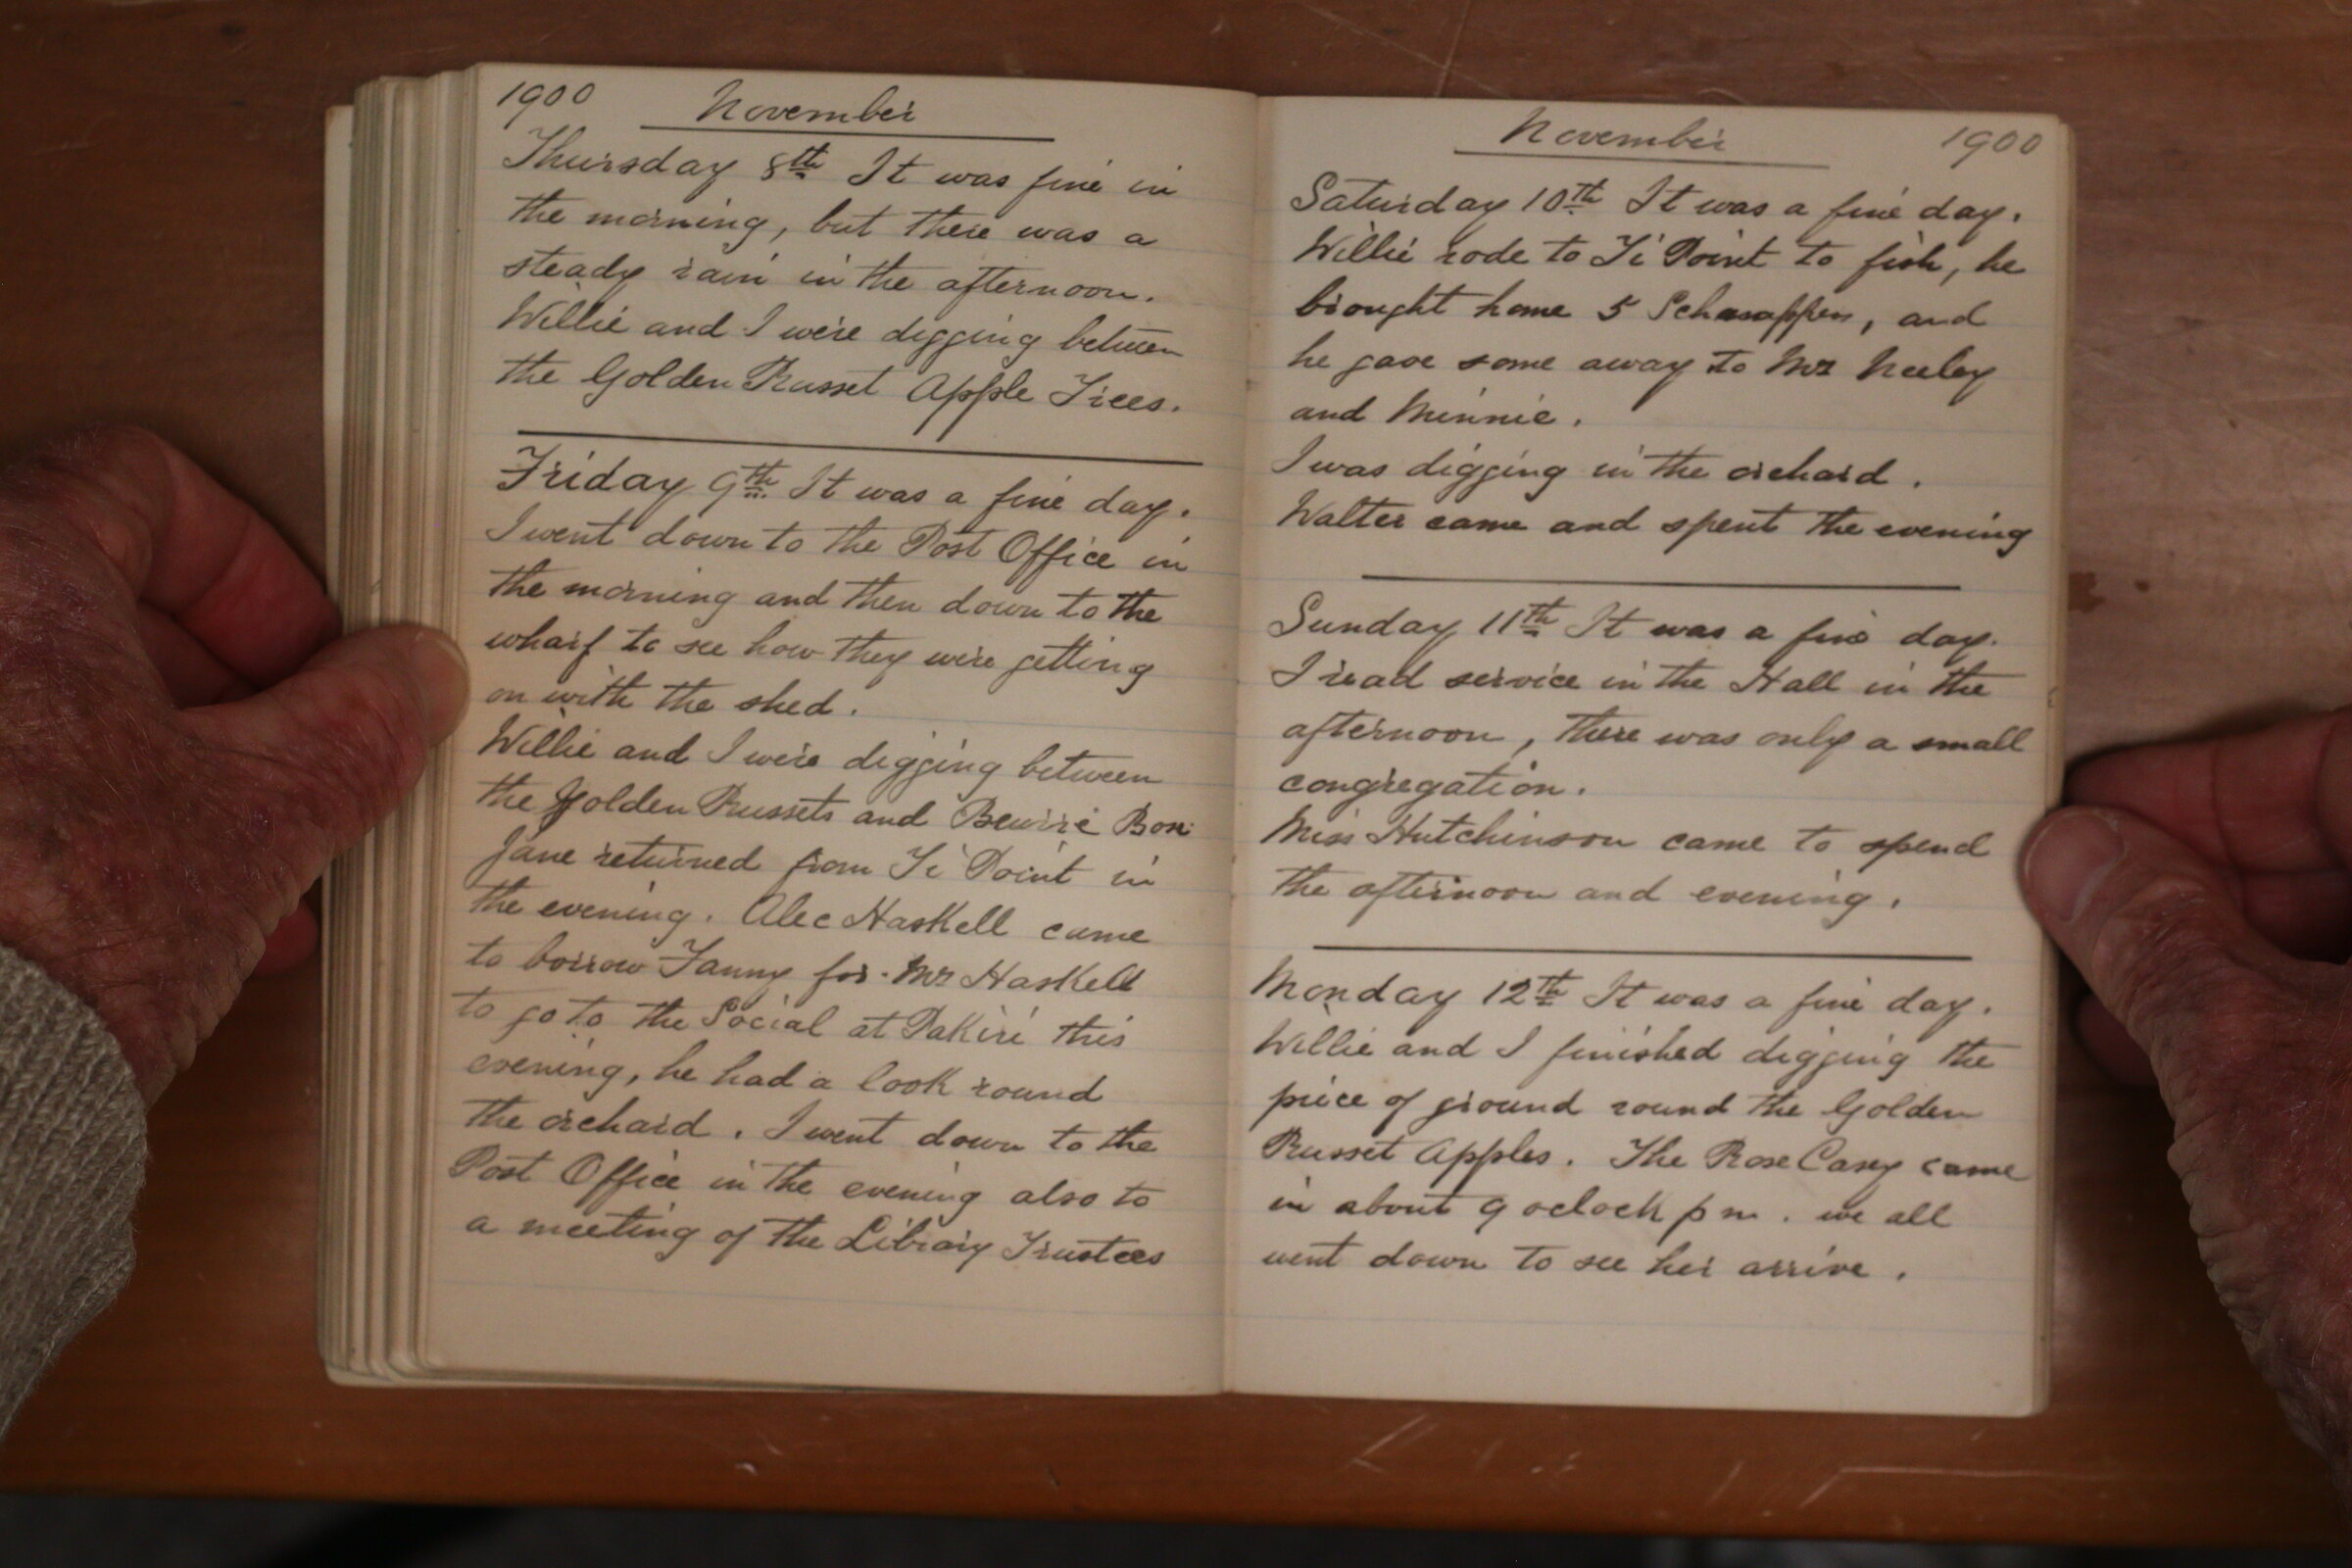 1900
November
Thursday 8th It was fine in
the morning, but there was a
steady rain in the afternoon.
Willie and I were digging between
the Golden Russet Apple Trees.
Friday 9th It was a fine day.
I went down to the Post Office in
the morning and then down to the
wharf to see how they were getting
on with the shed.
Willie and I were digging between
the Golden Russets and Beurre
Jane returned from Ti Point in
the evening. Alec Haskell came
to borrow Fanny for Mr Haskell
to go to the Social at Pakiri this
evening, he had a look round
the orchard. I went down to the
Post Office in the evening also to
a meeting of the Library Trustees
November 1900
Saturday 10th It was a fine day.
Willie rode to Ti Point to fish, he
brought home 5 , and
he gave some away to Mr Neeley
and Minnie.
I was digging in the orchard.
Walter came and spent the evening
Sunday 11th It was a fine day.
I read service in the Hall in the
afternoon, there was only a small
congregation.
Miss Hutchinson came to spend
the afternoon and evening.
Monday 12th It was a fine day.
Willie and I finished digging the
piece of ground round the Golden
Russet Apples. The Rose Casey came
in about 9 oclock pm. we all
went down to see her arrive.